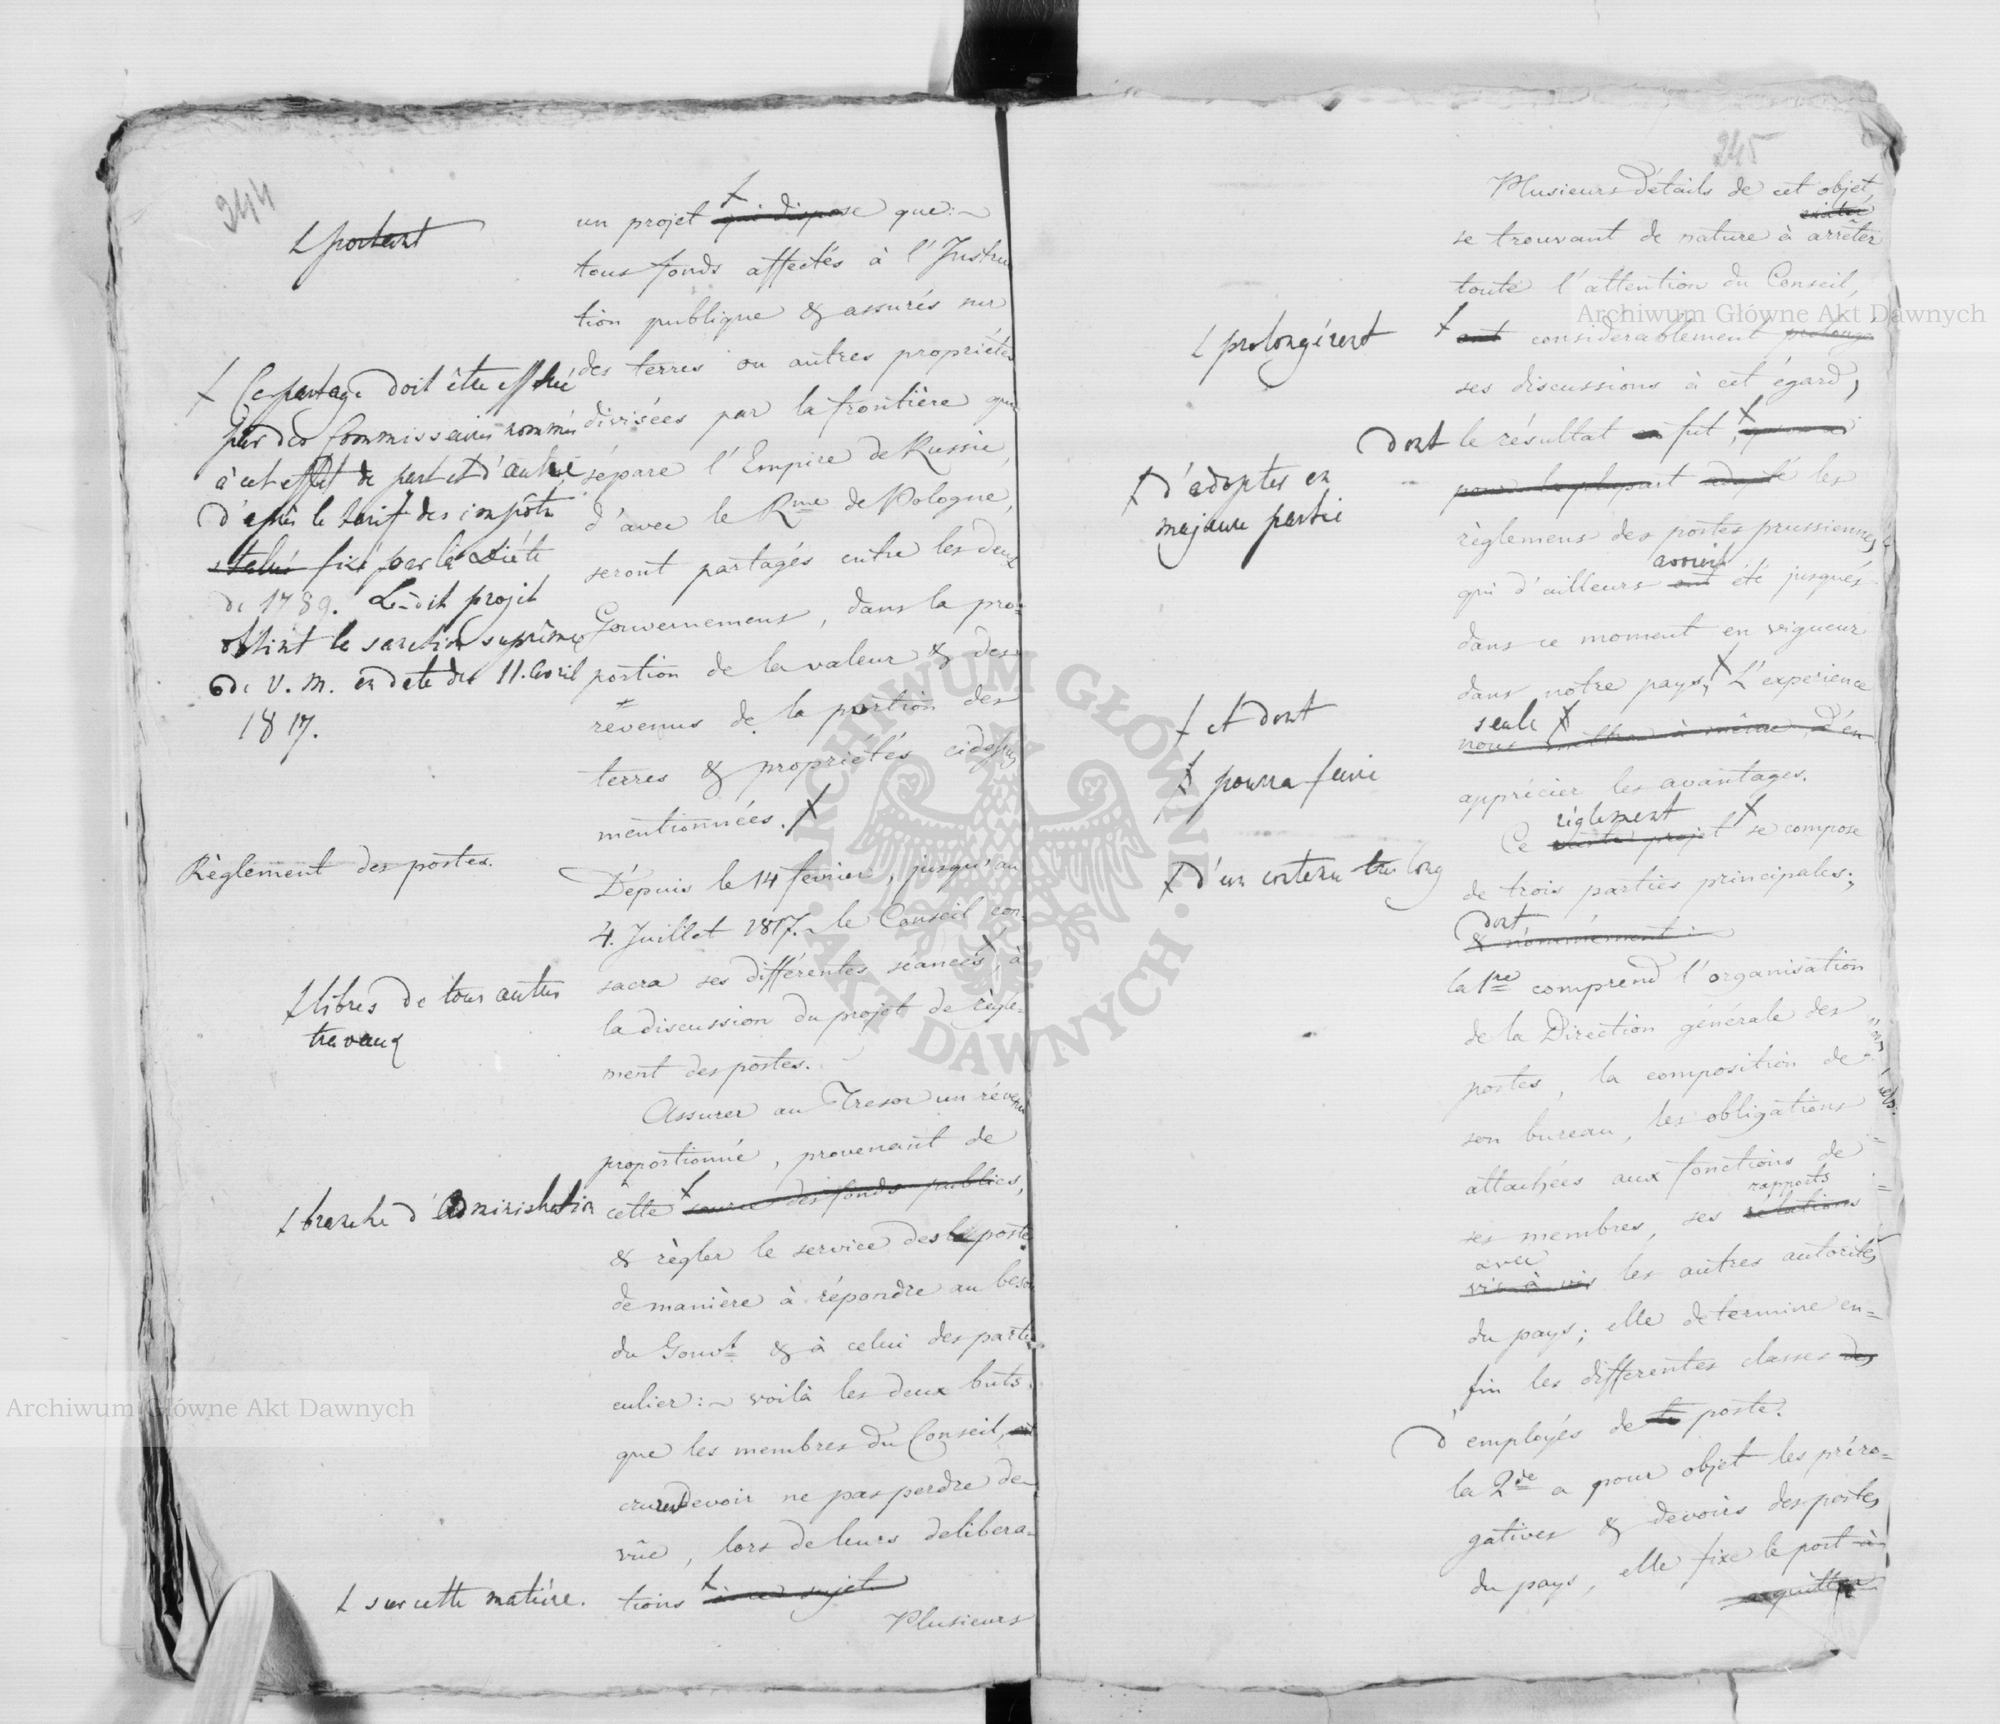 244
portant
un projet qui dispose que:~
tous fonds affectés à l'Instruc
tion publique & assurés sur
des terres ou autres propriétés
divisées par la frontière qui
sépare l'Empire de Russie,
d'avec le Rme de Pologne,
seront partagés entre les deux
Gouvernemens, dans la pro=
portion de la valeur & des
revenus de la portion des
terres & propriétés cidessus
mentionnées.
Ce partage doit être effectué
par des Commissaires nommés
à cet effet de part et d'autre
d'après le tarif des impôts
statué fixé par la Diéte
de 1789. Le dit projet
obtint la sanction suprême
de V. M. en date du 11. Avril
1817.
Règlement des postes.
Dépuis le 14 fevrier, jusqu'au
4. Juillet 1817.~ le Conseil con=
sacra ses différentes séances, à
la discussion du projet de règle=
ment des postes.
libres de tous autres
travaux
Assurer au Tresor un révenu
proportionné, provenant de
cette source des fonds publics,
branche d'Administration
& règler le service des postes
de manière à répondre au besoin
du Gouvt & à celui des parti
culier:~ voilà les deux buts
que les membres du Conseil,
crurent devoir ne pas perdre de
vûe, lors de leurs delibera=
tions à ce sujet
sur cette matiére.
Plusieurs
245
Plusieurs détails de cet objet
se trouvant de nature à arrêter
toute l'attention du Conseil,
ont considerablement prolongé
prolongérent
ses discussions à cet égard,
dont le résultat fut,
pour la plupart adopté les
d'adopter en
majeure partie
règlemens des postes prussiennes,
avoient
qui d'ailleurs ont été jusqués
dans ce moment en vigueur
dans notre pays, L'experience
et dont
seule
nous mettra à même d'en
pourra faire
apprécier les avantages.
règlement
Ce vaste projet se compose
d'un contenu très long
de trois parties principales;
dont
& nommément:
la 1re comprend l'organisation
de la Direction générale des
postes, la composition de
son bureau, les obligations
attachées aux fonctions de
rapports
ses membres, ses relations
avec
vis à vis les autres autorités
du pays; elle determine en=
fin les differentes classes des
d'employés de la poste.
la 2de a pour objet les préro=
gatives & devoirs des postes
du pays, elle fixe le port à
acquitter
Archiwum Główne Akt Dawnych
Archiwum Główne Akt Dawnych
ARCHIWUM GŁÓWNE
AKT DAWNYCH